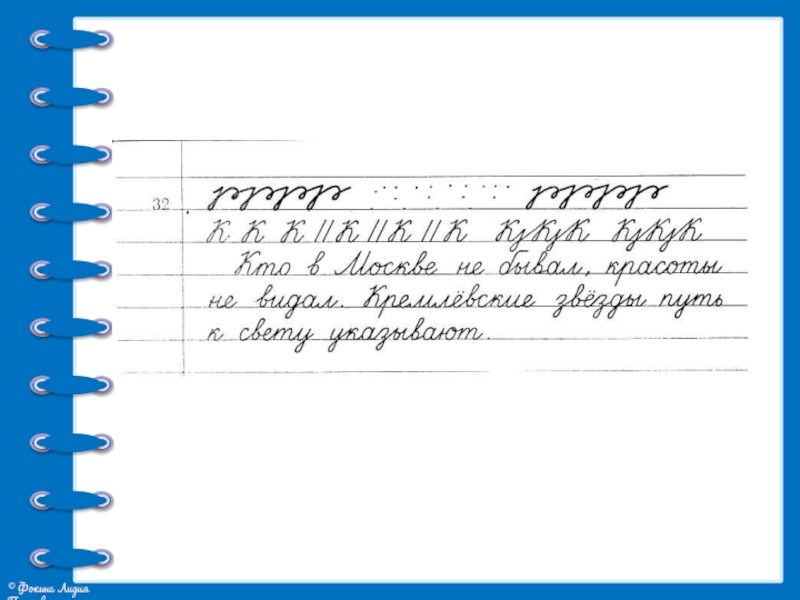 32
К К К // К // К // К КзКзК КзКзК
Кто в Москве не бывал, красоты
не видал. Кремлёвские звёзды путь
к свету указывают.
© Фокина Лидия